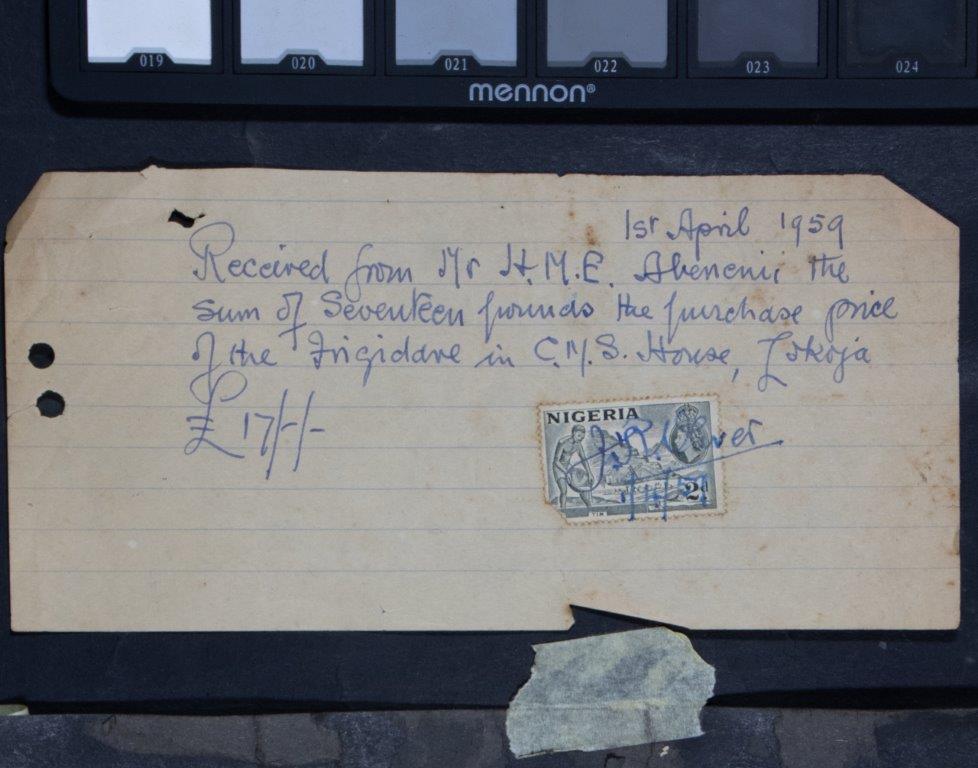 019 020 021 022 023 024
mennon®
1st April 1959
Received from Mr H.M.E. the
sum of Seventeen pounds the purchase price
of the Frigidare in C.M.S. House, Lokoja
£ 17/-/-
NIGERIA
2d
TIN
1/4/59